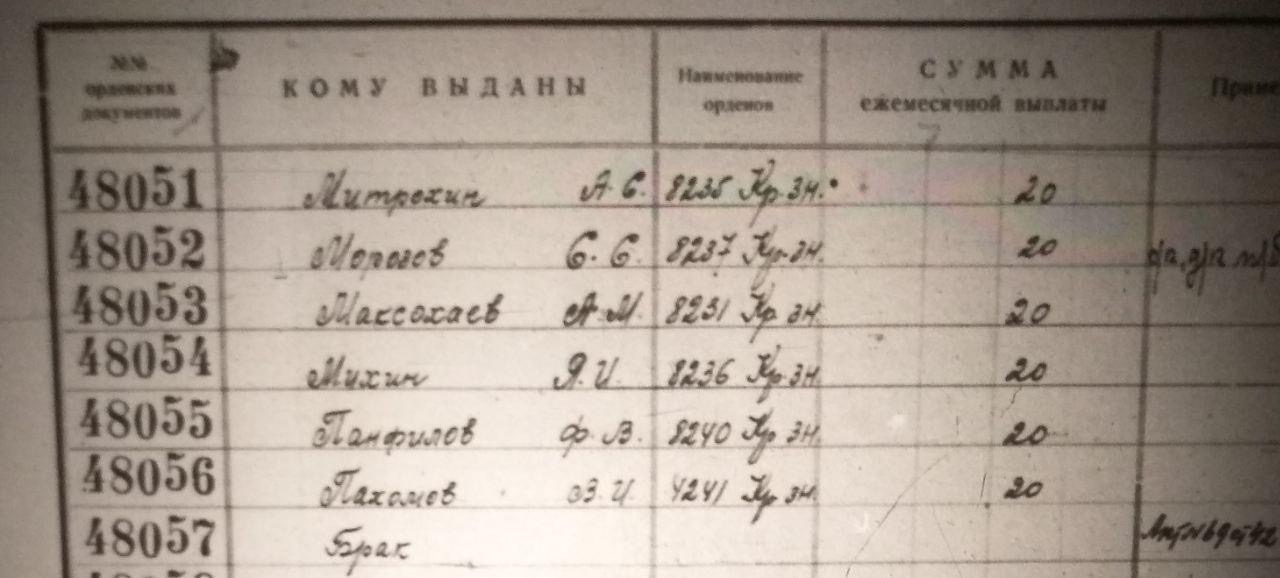 №№ орденских документов КОМУ ВЫДАНЫ Наименование орденов СУММА ежемесячной выплаты Приме
48051 Митрохин А. С. 8235 Кр. зн. 20
48052 Морозов С. С. 8237 Кр. зн. 20
48053 Максохаев А. М. 8231 Кр зн. 20
48054 Михин Я. И. 8236 Кр. зн. 20
48055 Панфилов Ф. В. 8240 Кр зн. 20
48056 Пахомов В. И. 4241 Кр зн. 20
48057 Брак